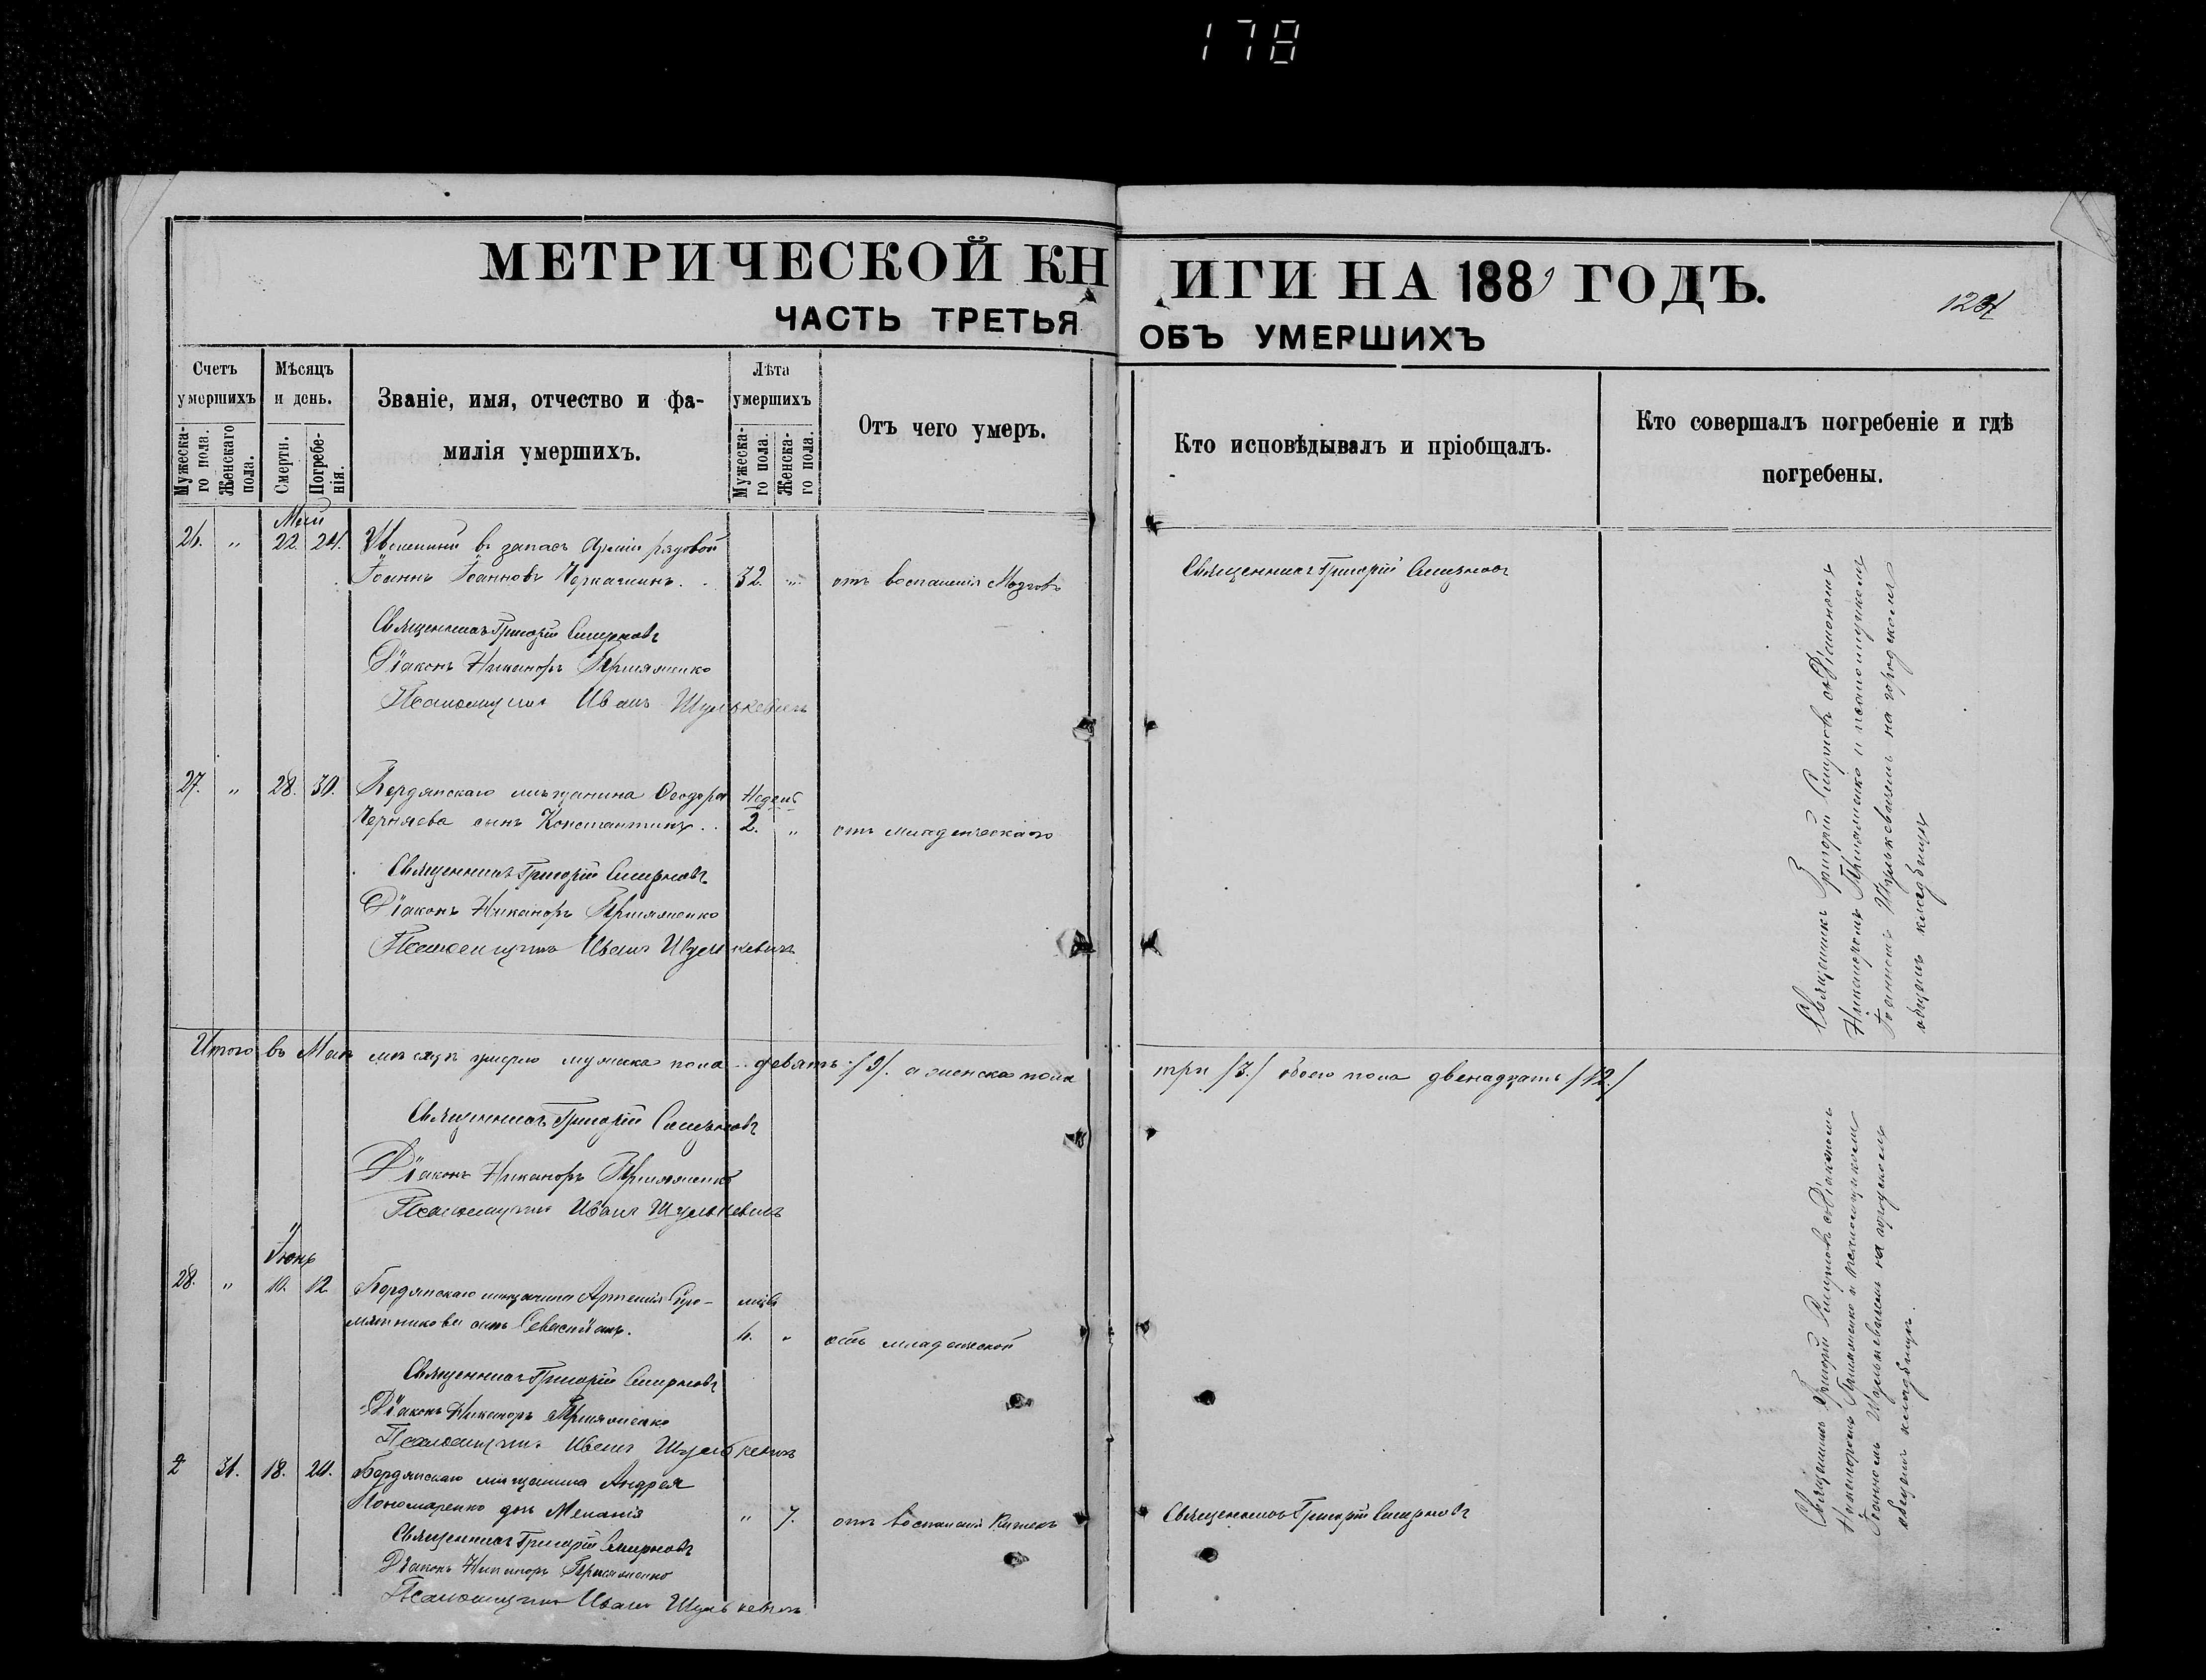 178
МЕТРИЧЕСКОЙ КНИГИ НА 1889 ГОДЪ.
ЧАСТЬ ТРЕТЬЯ ОБЪ УМЕРШИХЪ
Счетъ умершихъ
Мужеска-го пола.
Женскаго пола.
Мѣсяцъ и день.
Смерти.
Погребе-нія.
Званіе, имя, отчество и фа-
милія умершихъ.
Лѣта умершихъ
Мужеска-го пола.
Женска-го пола.
Отъ чего умеръ.
Кто исповѣдывалъ и пріобщалъ.
Кто совершалъ погребеніе и гдѣ
погребены.
Май
26. " 22. 24. въ запасъ Арміи рядовой
Іоаннъ Іоанновъ 32. " отъ воспаленія Мозговъ
Священникъ Григорій Смирновъ
Священникъ Григорій Смирновъ
Діаконъ Никаноръ
Псаломщикъ Иванъ Шулькевичъ
27. " 28. 30. Бердянскаго мѣщанина Ѳеодора Недель
Черняева сынъ Константинъ. 2. " отъ младенческаго
Священникъ Григорій Смирновъ
Діаконъ Никаноръ
Псаломщикъ Иванъ Шулькевичъ
Священникъ Григорій Смирновъ съ Діакономъ
Никаноромъ и псаломщикомъ
Іоанномъ Шулькевичемъ на городскомъ
общемъ кладбищѣ
Итого въ Маѣ мѣсяцѣ умерло мужска пола девять /9/. а женска пола три /3./ обоего пола двенадцать /12./
Священникъ Григорій Смирновъ
Діаконъ Никаноръ
Псаломщикъ Иванъ Шулькевичъ
Іюнь
28. " 10. 12. Бердянскаго мѣщанина
сынъ Севастіанъ. " отъ младенческой
Священникъ Григорій Смирновъ
Діаконъ Никаноръ
Псаломщикъ Иванъ Шулькевичъ
18. 20. Бердянскаго мѣщанина Андрея
Пономаренко дочь Меланія " 7. отъ воспаленія Кишекъ
Священникъ Григорій Смирновъ
Священникъ Григорій Смирновъ
Діаконъ Никаноръ
Псаломщикъ Иванъ Шулькевичъ
Священникъ Григорій Смирновъ съ Діакономъ
Никаноромъ и псаломщикомъ
Іоанномъ Шулькевичемъ на городскомъ
общемъ кладбищѣ.